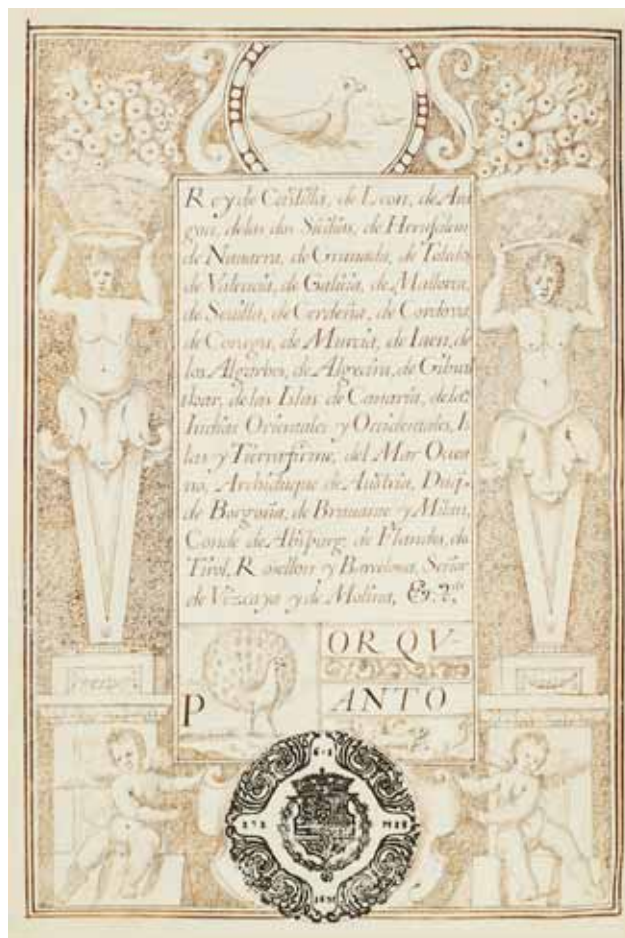 Rey de Castilla, de Leon, de Ara
gon, de las dos Sicilias, de Hierusalem
de Nauarra, de Granada, de Toledo
de Valencia, de Galicia, de Mallorca,
de Seuilla, de Cerdeña, de Cordova
de Corcega, de Murcia, de Iaen, de
los Algarbes, de Algecira, de Gibral
de las Islas de Canaria, de las
Indias Orientales y Occidentales, Is
las y Tierrafirme, del Mar Ocea
no, Archiduque de Austria, Duq.
de Borgoña, de Brauante y Milan,
Conde de Abspurg, de Flandes, de
Tirol, Rosellon y Barcelona, Señor
de Vizcaya y de Molina, &
P
ORQV-
ANTO